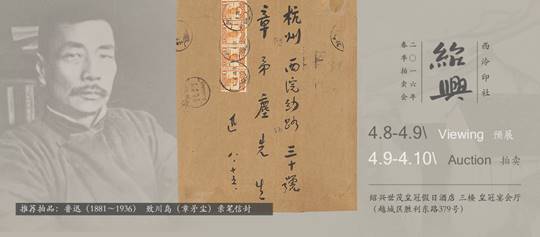 杭州
西浣纱路
三十号
章矛尘先生
迅 八·十三
西泠印社
紹興
二〇一六年
春季拍卖会
4.8-4.9\ Viewing 预展
4.9-4.10\ Auction 拍卖
绍兴世茂皇冠假日酒店 三楼 皇冠宴会厅
(越城区胜利东路379号)
推荐拍品:鲁迅(1881～1936) 致川岛(章矛尘)亲笔信封